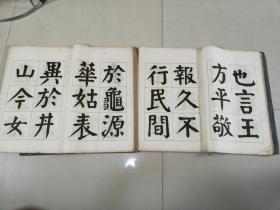 也言王
方平敬
報久不
行民間
於龜源
華姑表
異於丼
山今女